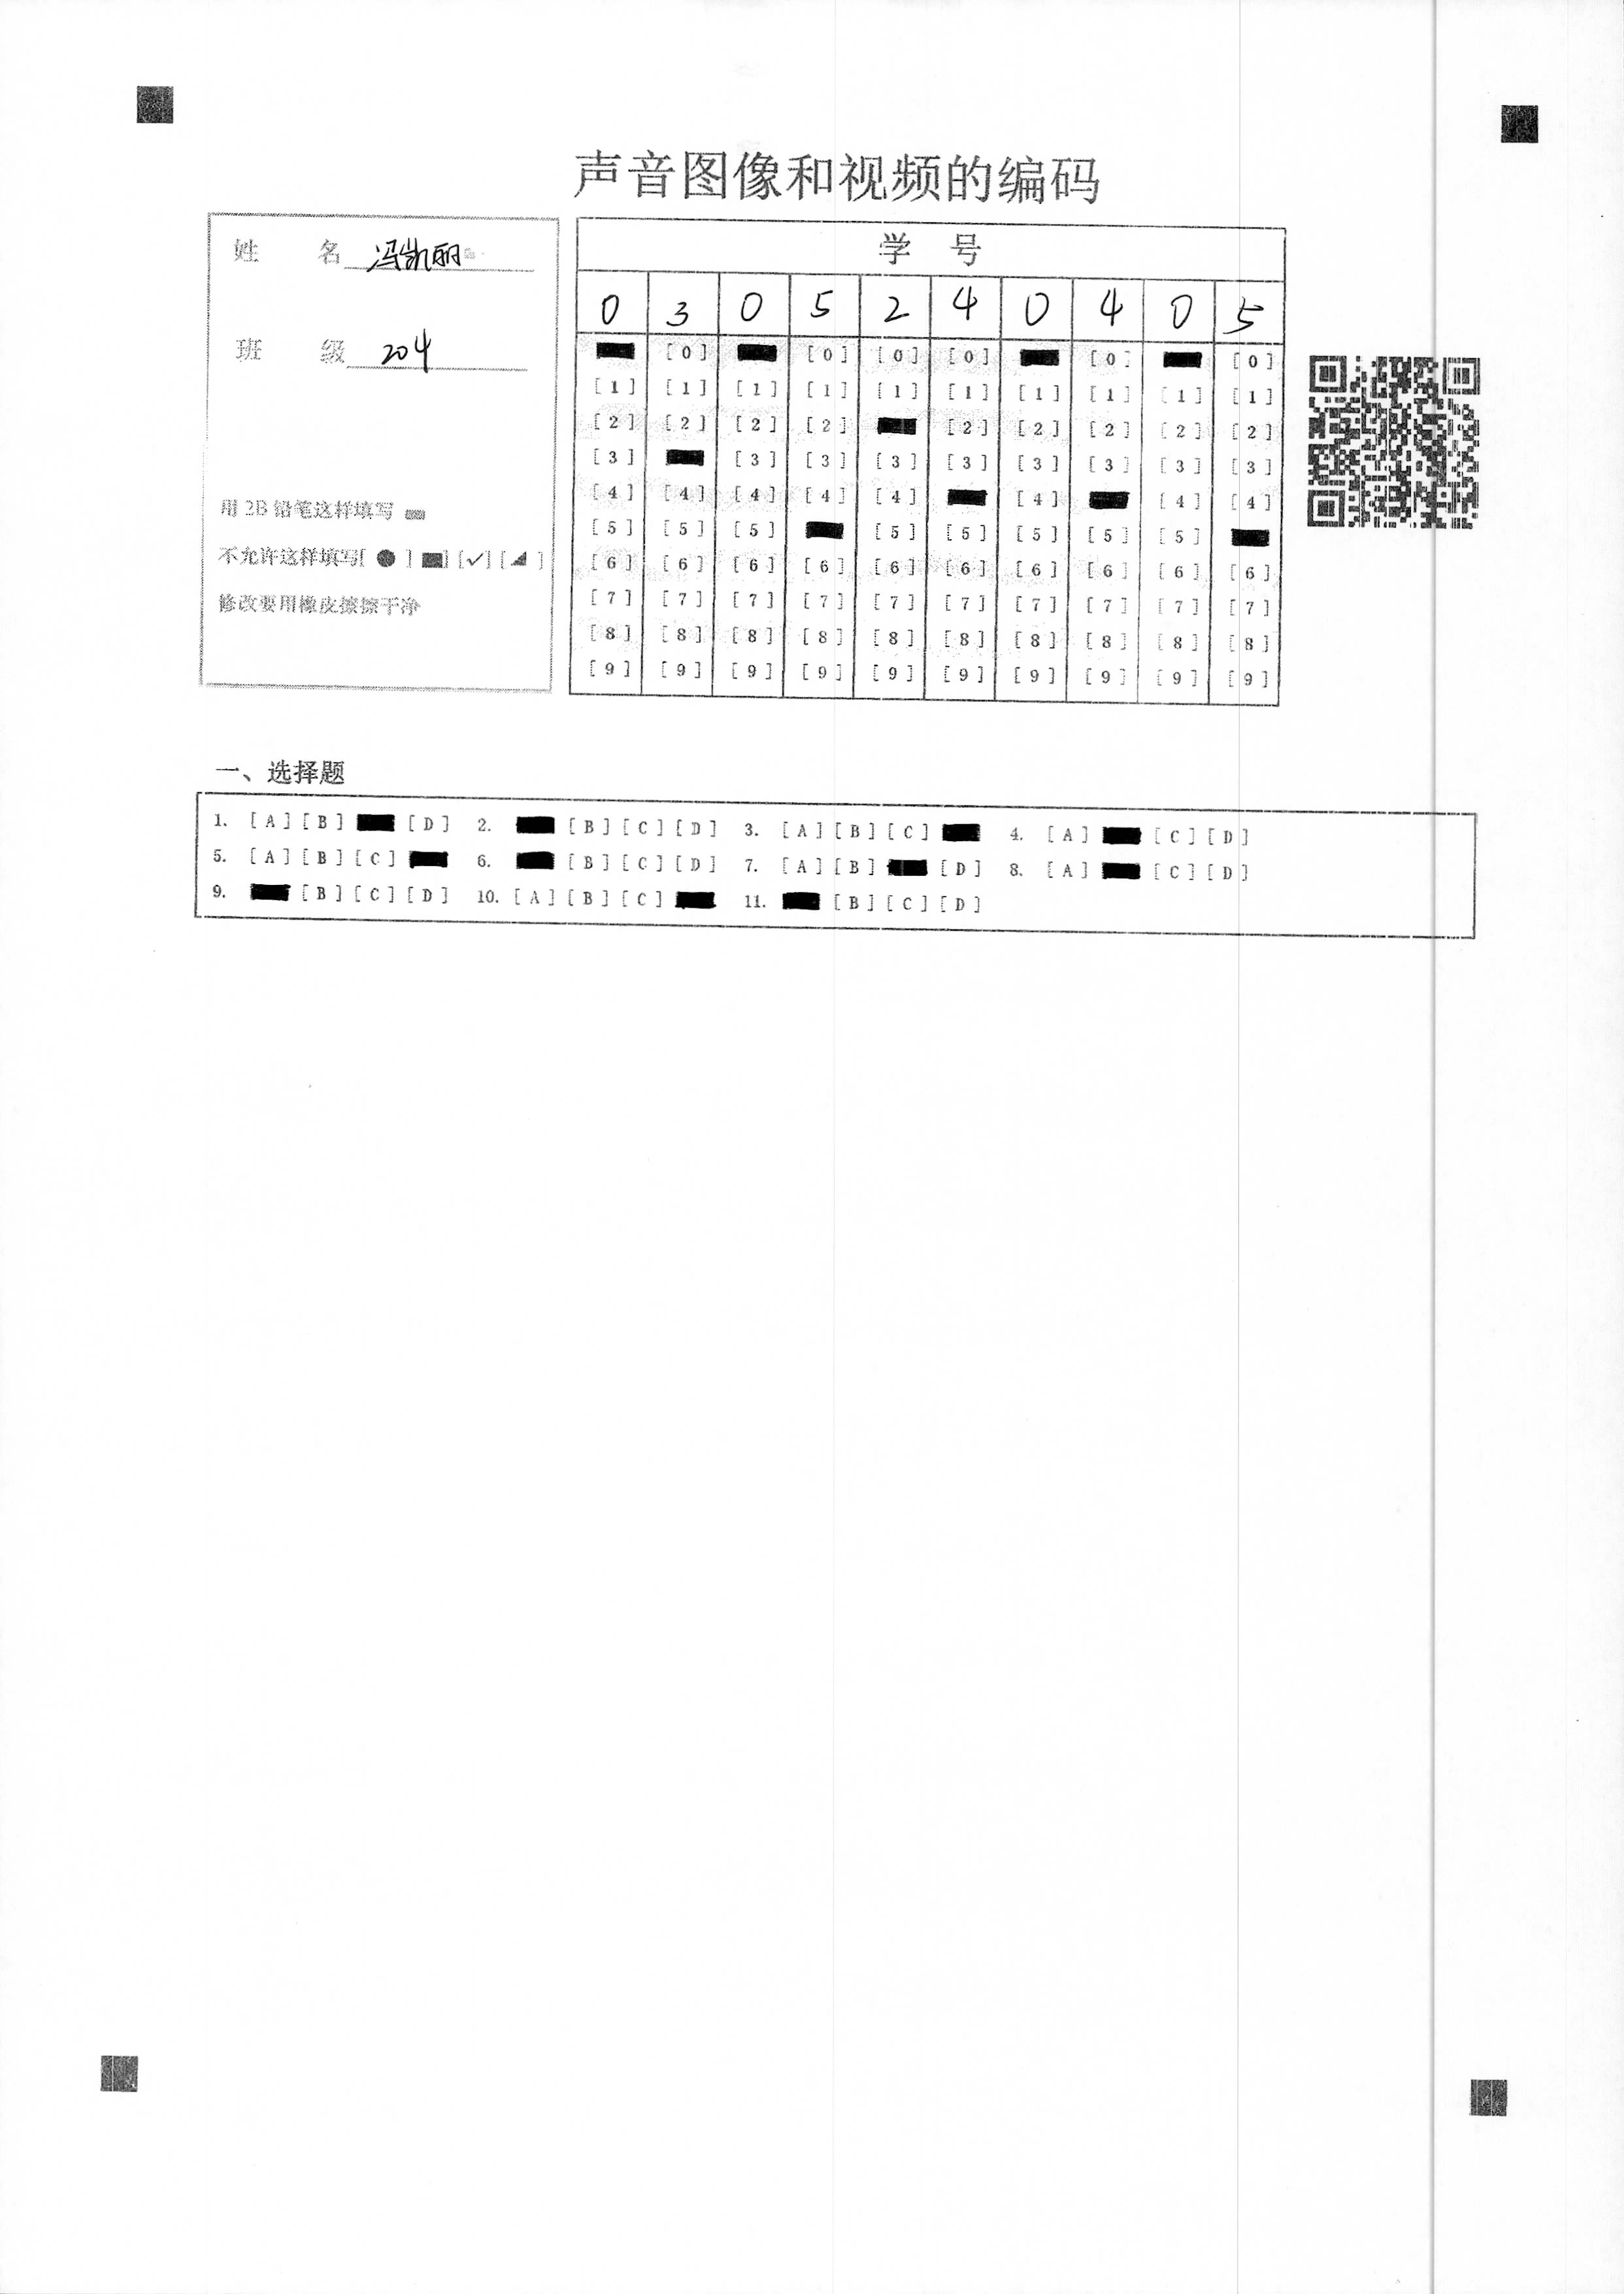 声音图像和视频的编码
姓 名 冯凯丽
班 级 204
用 2B 铅笔这样填写
不允许这样填写[ ● ] [ ■ ] [ ✓ ] [ ◢ ]
修改要用橡皮擦擦干净
学 号
0 3 0 5 2 4 0 4 0 5
[0] [0] [0] [0] [0] [0]
[1] [1] [1] [1] [1] [1] [1] [1] [1] [1]
[2] [2] [2] [2] [2] [2] [2] [2] [2]
[3] [3] [3] [3] [3] [3] [3] [3] [3]
[4] [4] [4] [4] [4] [4] [4] [4]
[5] [5] [5] [5] [5] [5] [5] [5]
[6] [6] [6] [6] [6] [6] [6] [6] [6] [6]
[7] [7] [7] [7] [7] [7] [7] [7] [7] [7]
[8] [8] [8] [8] [8] [8] [8] [8] [8] [8]
[9] [9] [9] [9] [9] [9] [9] [9] [9] [9]
一、选择题
1. [A] [B] [D] 2. [B] [C] [D] 3. [A] [B] [C] 4. [A] [C] [D]
5. [A] [B] [C] 6. [B] [C] [D] 7. [A] [B] [D] 8. [A] [C] [D]
9. [B] [C] [D] 10. [A] [B] [C] 11. [B] [C] [D]